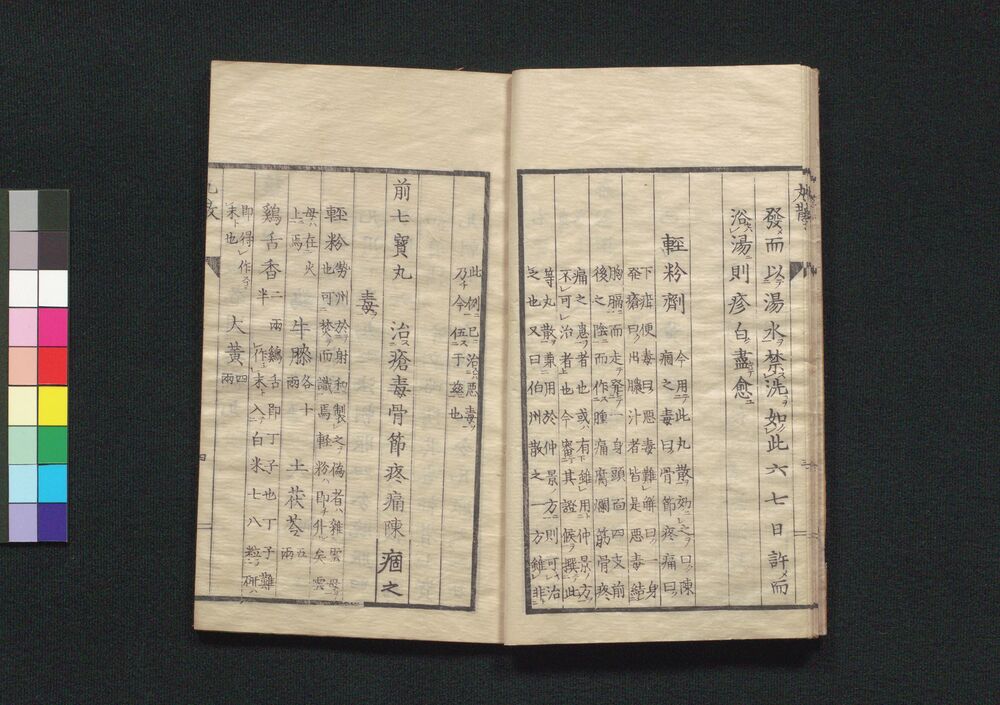 發而以湯水禁洗如此六七日許而
浴湯則疹白盡愈
輕粉劑
今用此丸散効之曰陳
痼之毒曰骨節疼痛曰
下疳便毒曰惡毒難解曰一身
發瘡曰出膿汁者皆是惡毒結
胸膈而走發一身頭面四支前
後之陰而作腫痛腐爛筋骨疼
痛之患者也或有雖用仲景方
不可治者也今審其證候撰此
等丸散兼用於仲景方則可治
之也又曰伯州散之一方雖非
此例已治惡毒
乃今伍于茲也
前七寶丸
治瘡毒骨節疼痛陳痼之
毒
輕粉
勢州於射和製之偽者雜雲母
粉也可焚而識焉輕粉即升矣雲
母在火
上焉
牛膝
各十
兩
土茯苓
五
兩
鷄舌香
二兩
半
鷄舌即丁子也丁子難
作末入白米七八粒研
即得作
末也
大黃
四
兩
丸散